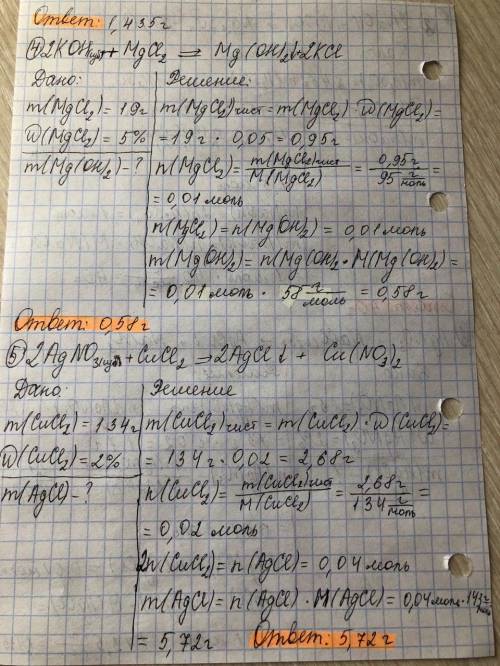 Ответ: 1,435г
④ 2KOH изб + MgCl₂ ⇌ Mg(OH)₂↓+2KCl
Дано: Решение:
m(MgCl₂)=19г m(MgCl₂)чист = m(MgCl₂)·W(MgCl₂)=
W(MgCl₂)=5% =19г · 0,05 = 0,95г
m(Mg(OH)₂)-? n(MgCl₂)= m(MgCl₂)чист / M(MgCl₂) = 0,95г / 95 г/моль =
= 0,01 моль
n(MgCl₂)=n(Mg(OH)₂)= 0,01моль
m(Mg(OH)₂)=n(Mg(OH)₂·M(Mg(OH)₂)=
= 0,01 моль · 58 г/моль = 0,58г
Ответ: 0,58г
⑤ 2AgNO₃ изб + CuCl₂ → 2AgCl↓ + Cu(NO₃)₂
Дано: Решение
m(CuCl₂)=134г m(CuCl₂)чист = m(CuCl₂)·W(CuCl₂)=
W(CuCl₂)=2% = 134г · 0,02 = 2,68г
m(AgCl)-? n(CuCl₂)= m(CuCl₂)чист / M(CuCl₂) = 2,68г / 134 г/моль =
= 0,02 моль
2n(CuCl₂)=n(AgCl)= 0,04 моль
m(AgCl)=n(AgCl)·M(AgCl)= 0,04моль·143 г/моль
= 5,72г Ответ: 5,72г